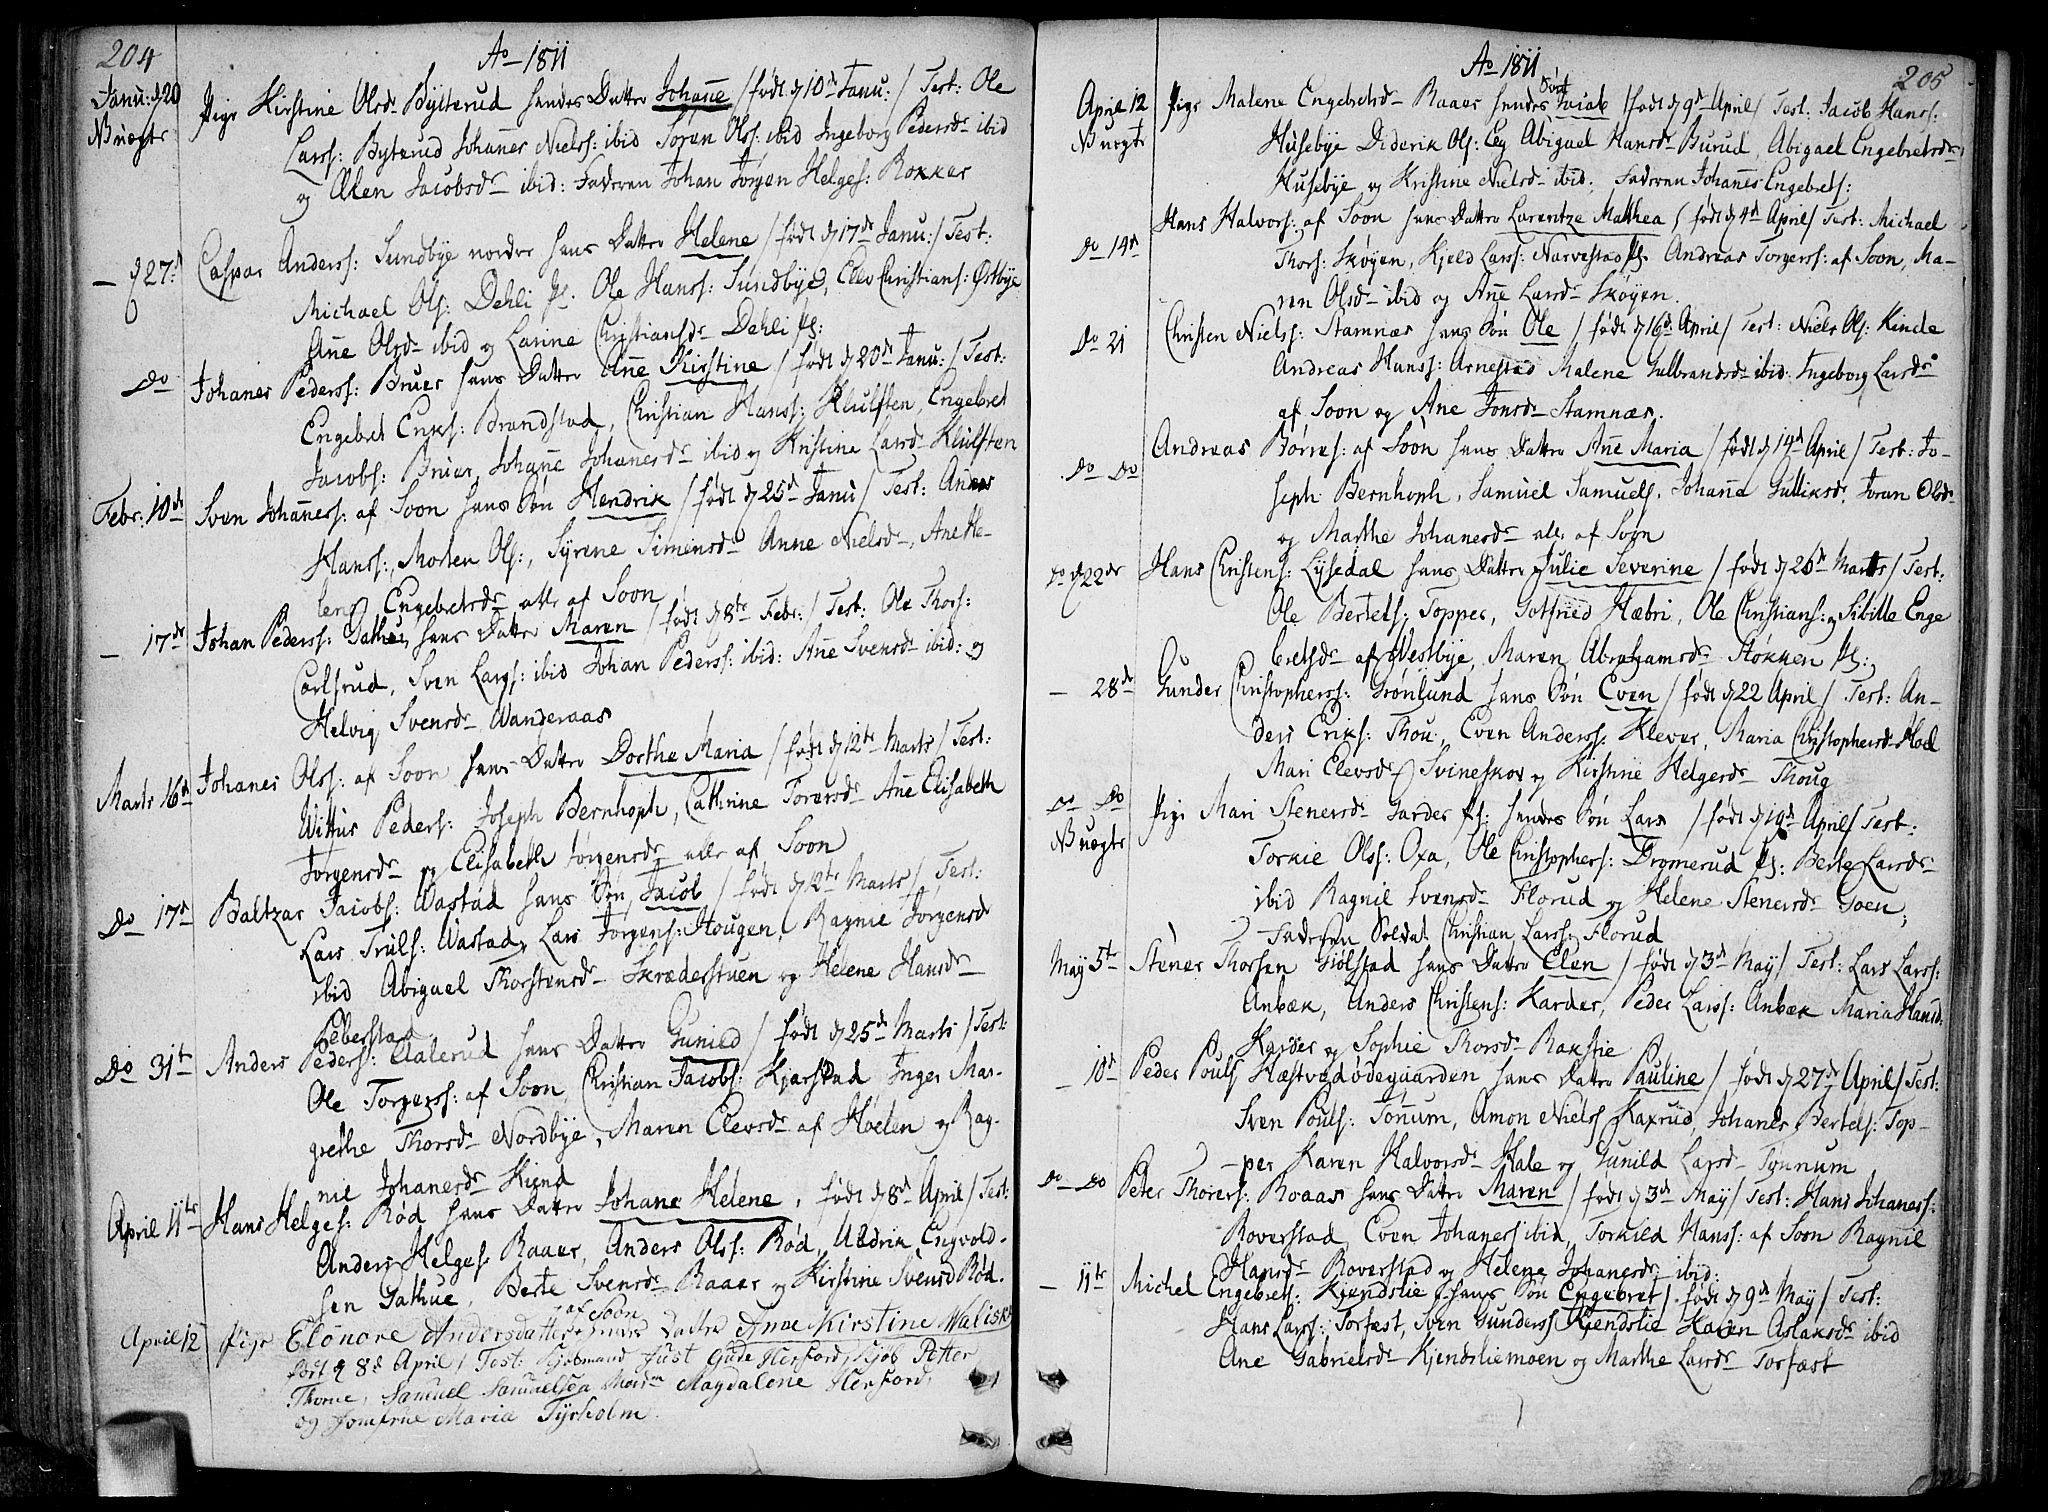 204
Ao 1811
Janu: d 20 Pige Kirstine Olsd. Bytterud hendes Datter Johane / født d 10de Janu: / Test: Ole
NB uægte Larss: Byterud Johannes Nielss: ibid Søren Olss: ibid Ingeborg Pedersd. ibid
og Ellen Jacobsd. ibid: Faderen Johan Jørgen Helges: Rokker
— d 27d Caspar Anderss: Sundbye nordre hans Datter Helene / født d 17de Janu: / Test:
Michael Ols: Dehli Ps. Ole Hanss: Sundbye, Elev Christians: Østbye
Ane Olsd. ibid og Larine Christiansd. Dehli Ps:
Do Johanes Pederss: Bruer hans Datter Ane Kirstine / født d 20de Janu: / Test:
Engebret Eriks: Brandstad, Christian Hanss: Klulften, Engebret
Jacobs: Bruer, Johane Johanesd. ibid og Kristine Larsd. Klulften
Febr: 10de Sven Johaness: af Soon hans Søn Hendrik / født d 25de Janu / Test: Anders
Hanss:, Morten Ols:, Syrene Simensd. Anne Nielsd., Ane He-
lene Engebretsd. alle af Soon
— 17de Johan Pederss: Gathue, hans Datter Maren / født d 8te Febr: / Test: Ole Thors:
Carlsrud, Sven Larss: ibid Johan Pederss: ibid: Ane Svensd. ibid: og
Helvig Svensd. Wanderaas
Marts 16d Johanes Olss: af Soon hans Datter Dorthe Maria / født d 12te Marts / Test:
Wittus Peders: Joseph Bernhoph, Cathrine Torersd. Ane Elisabeth
Jørgensd. og Elisabeth Jørgensd. alle af Soon
Do 17d Baltzar Jacobs: Wastad hans Søn Jacob / født d 12te Marts / Test:
Lars Truls: Wastad, Lars Jørgens: Hougen, Ragnie Jørgensd
ibid Abigael Thorstensd. Skræderstuen og Helene Hansd.
Peberstad
Do 31te Anders Peders: Aalerud hans Datter Gunild / født d 25de Marts / Test:
Ole Torgerss: af Soon, Christian Jacobs: Kjærstad Inger Mar-
grethe Thorsd. Nordbye, Maren Elevsd. af Hoelen og Rag-
nie Johanesd. Kiend
April 11te Hans Helges: Rød hans Datter Johane Helene, født d 8d April / Test:
Anders Helges: Raaer, Anders Olss: Rød, Uldrik Engvold-
sen Gathue, Berte Svensd. Raaer og Kirstine Svensd Rød.
af Soon
April 12 Pige Elonore Andersdatter hendes Datter Anne Kirstine Walisk
født d 8d April / Test: Kjøbmand Just Gude Herford, Kjøb Petter
Thorne, Samuel Samuelsen Madm Magdalene Herford,
og Jomfrue Maria Tyrholm.
205
Ao 1811
April 12 Pige Malene Engebretsd. Raaer hendes Tvial / født d 9d April / Test: Jacob Hanss:
NB uægte Husebye Diderik Ols: Eeg Abigael Hansd. Burud, Abigael Engebretsd.
Husebye og Kristine Nielsd. ibid; Faderen Johanes Engebrets:
Do 14d Hans Halvors: af Soon hans Datter Larentze Matthea / født d 4d April / Test: Michael
Thors: Skøyen, Kjeld Larss: Narvestad Ps. Andreas Torgerss: af Soon, Ma-
ren Olsd. ibid og Ane Larsd. Skøyen.
Do 21 Christen Niels: Stamnæs hans Søn Ole / født d 16d April / Test: Niels Ols: Kinde
Andreas Hanss: Arnestad Malene Gulbrandsd. ibid: Ingeborg Larsd.
af Soon og Ane Jonsd. Stamnæs.
Do Do Andreas Børres: af Soon hans Datter Ane Maria / født d 14d April / Test: Jo-
seph Bernhoph, Samuel Samuels. Johana Gulliksd. Joran Olsd.
og Marthe Johanesd. alle af Soon
Do d 22de Hans Christens: Lysedal hans Datter Julie Severine / født d 26d Marts / Test:
Ole Bertels: Topper, Gotfried Hæbri, Ole Christians: og Sibille Enge
bretsd. af Westbye, Maren Abrahamsd. Støkken Ps:
— 28de Gunder Christopherss: Grønlund hans Søn Even / født d 22 April / Test: An-
ders Eriks: Thou, Even Anderss: Klever, Maria Christophersd. Hoel
Mari Elevsd. Svineskov og Kirstine Helgesd. Thoug
Do Do Pige Mari Stenersd. Garder Ps: hendes Søn Lars / født d 19d April / Test:
NB uægte Torkie Olss: Oxa, Ole Christophers: Dromerud Ps: Berte Larsd.
ibid Ragnil Svensd. Florud og Helene Stenersd. Goen,
Faderen Soldat Christian Larss: Florud
May 5te Stener Thorsen Giølstad hans Datter Elen / født d 3d May / Test: Lars Larss:
Anbæk, Anders Christens: Karder, Peder Larss: Anbæk Maria Hansd:
Karder og Sophie Thorsd. Rakstie
— 10d Peder Pouls Hæstvedødegaarden hans Datter Pauline / født d 27de April / Test:
Sven Pouls: Tonnum, Amon Niels Kaxrud, Johanes Bertels: Top-
-per Karen Halvorsd. Hale og Gunild Larsd. Tynnum
Do Do Peter Thorers: Roaas hans Datter Maren / født d 3d May / Test: Hans Johaness:
Roverstad, Even Johaness ibid, Torkild Hanss: af Soon Ragnil
Hansd. Roverstad og Helene Johanesd. ibid:
— 11te Michel Engebrets: Kjendslie hans Søn Engebret / født d 9d May / Test:
Hans Larss: Torfæst, Sven Gunderss Kjendslie Karen Aslaksd. ibid
Ane Gabrielsd. Kjendsliemoen og Marthe Larsd. Torfæst